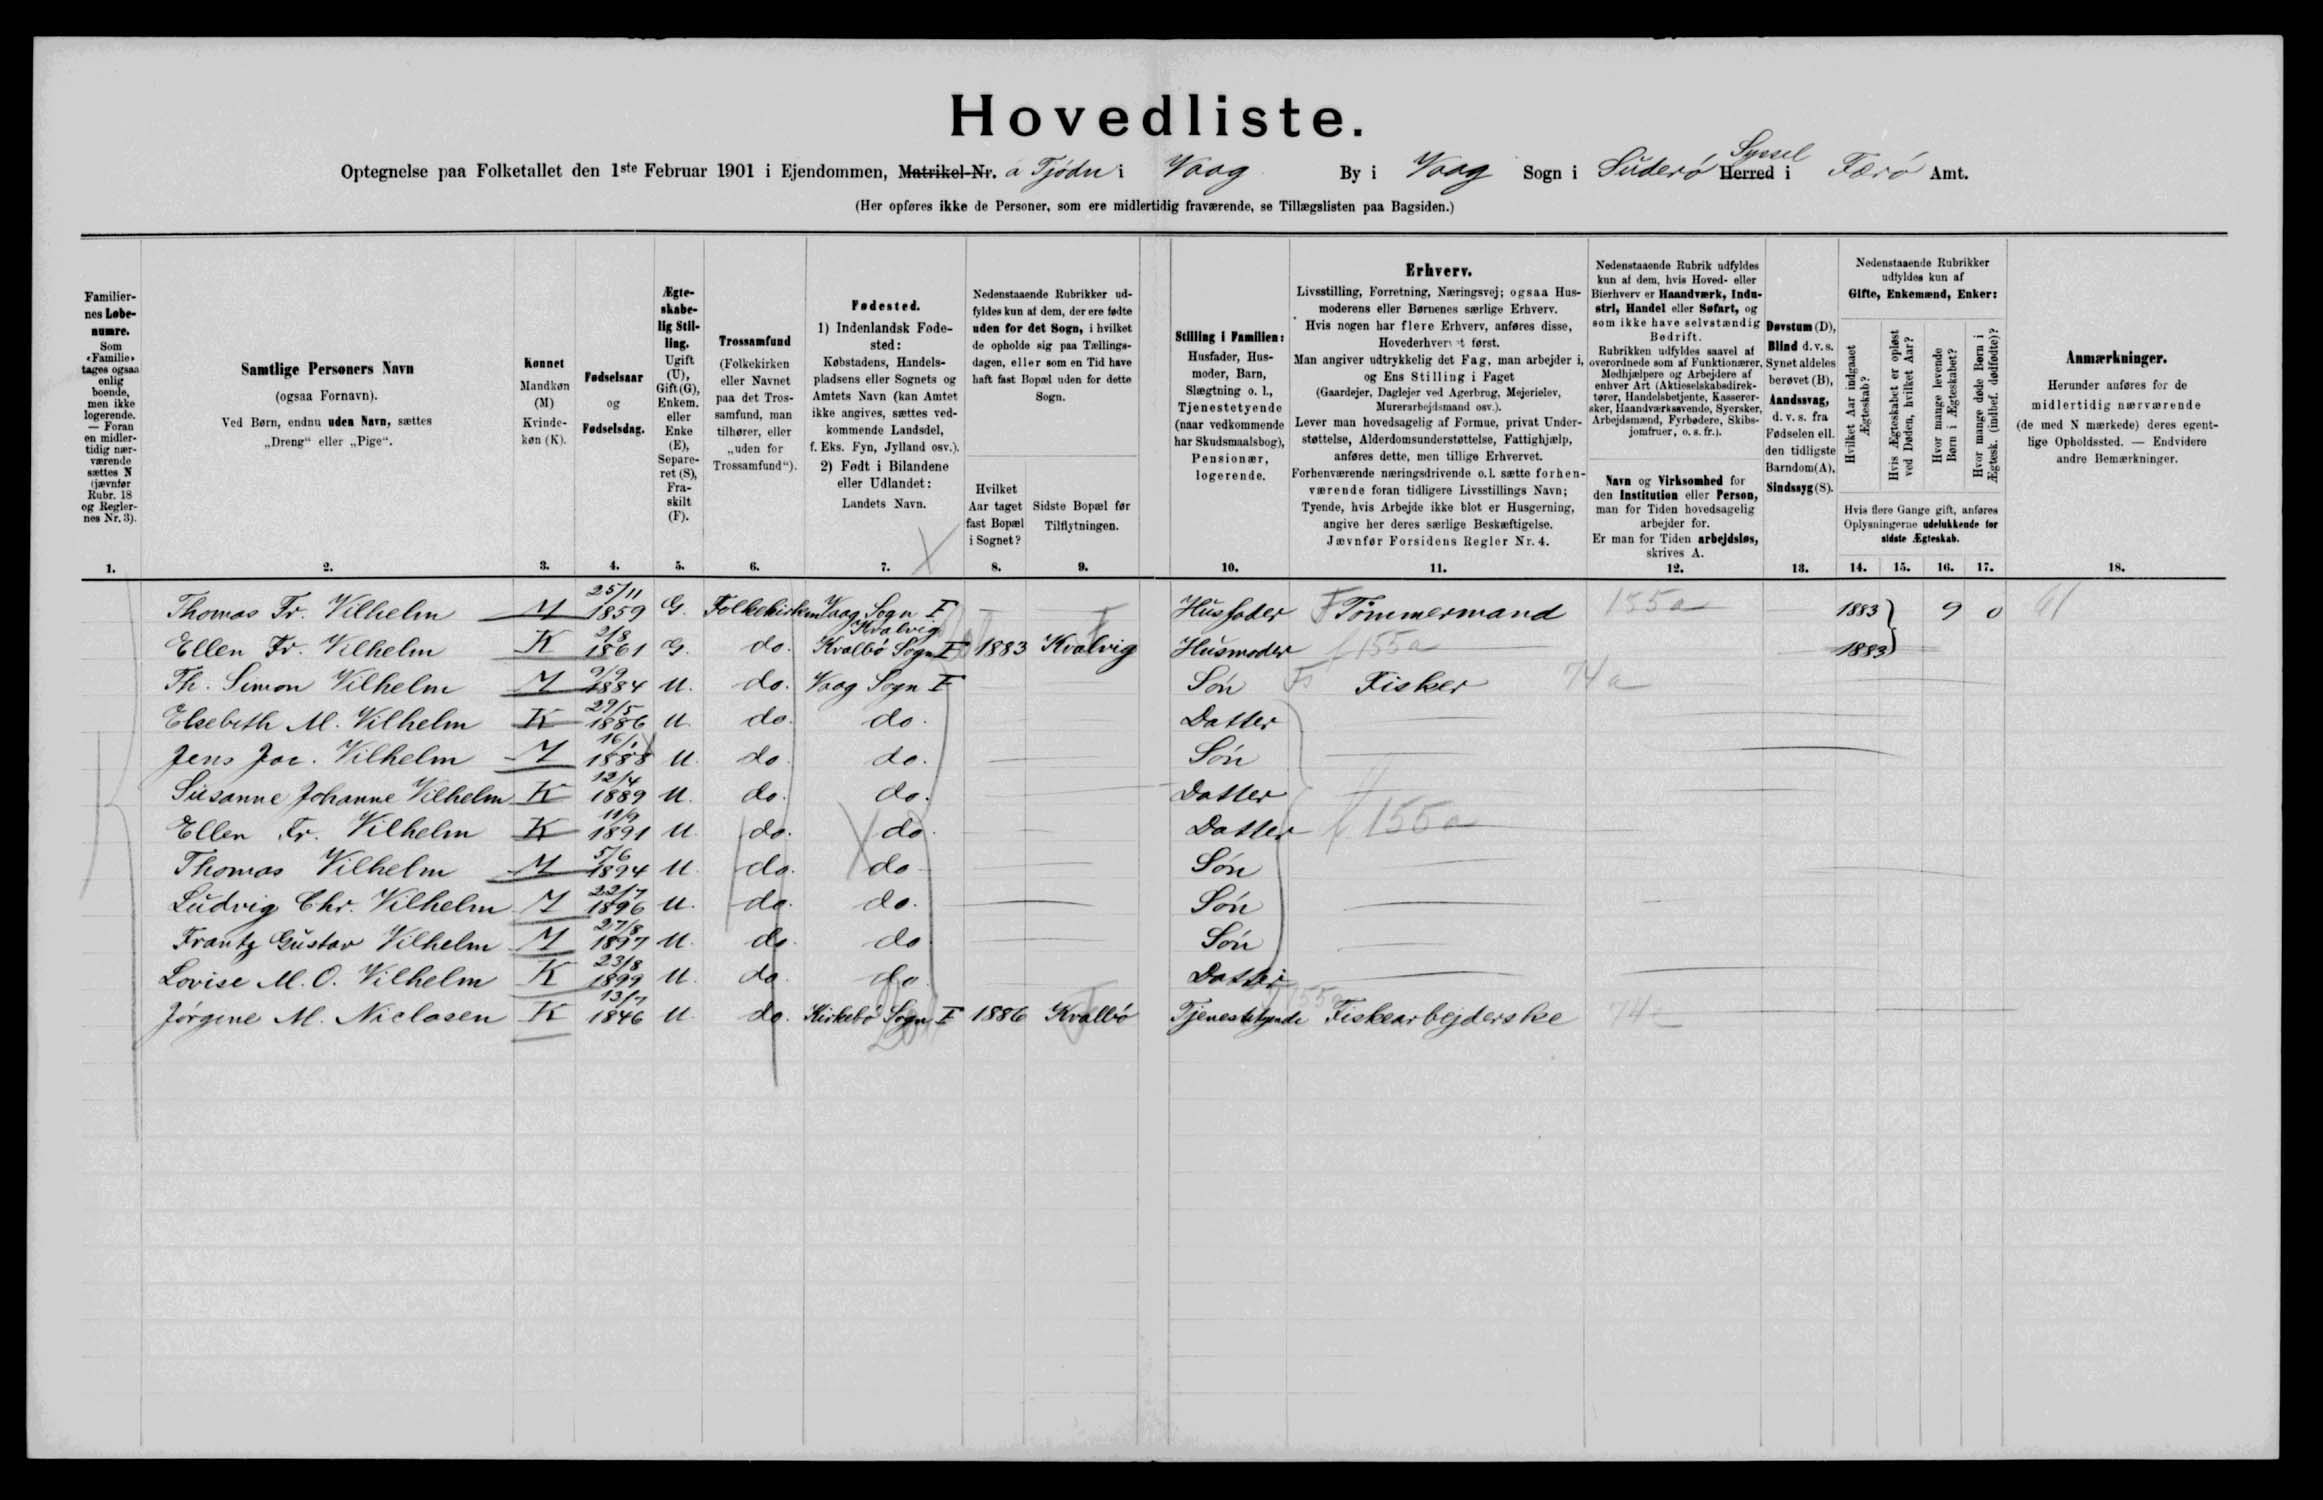 Hovedliste.
Optegnelse paa Folketallet den 1ste Februar 1901 i Ejendommen, Matrikel-Nr. a Tjödn i Vaag By i Vaag Sogn i Suderö Herred i Færö Amt.
Syssel
(Her opføres ikke de Personer, som ere midlertidig fraværende, se Tillægslisten paa Bagsiden.)
Familier-
nes Løbe-
numre.
Som
«Familie»
tages ogsaa
enlig
boende,
men ikke
logerende.
— Foran
en midler-
tidig nær-
værende
sættes N
(jævnfør
Rubr. 18
og Regler-
nes Nr. 3).
1.
Samtlige Personers Navn
(ogsaa Fornavn).
Ved Børn, endnu uden Navn, sættes
„Dreng" eller „Pige".
2.
Kønnet
Mandkøn
(M)
Kvinde-
køn (K).
3.
Fødselsaar
og
Fødselsdag.
4.
Ægte-
skabe-
lig Stil-
ling.
Ugift
(U),
Gift (G),
Enkem.
eller
Enke
(E),
Separe-
ret (S),
Fra-
skilt
(F).
5.
Trossamfund
(Folkekirken
eller Navnet
paa det Tros-
samfund, man
tilhører, eller
„uden for
Trossamfund").
6.
Fødested.
1) Indenlandsk Føde-
sted:
Købstadens, Handels-
pladsens eller Sognets og
Amtets Navn (kan Amtet
ikke angives, sættes ved-
kommende Landsdel,
f. Eks. Fyn, Jylland osv.).
2) Født i Bilandene
eller Udlandet:
Landets Navn.
7.
Nedenstaaende Rubrikker ud-
fyldes kun af dem, der ere fødte
uden for det Sogn, i hvilket
de opholde sig paa Tællings-
dagen, eller som en Tid have
haft fast Bopæl uden for dette
Sogn.
Hvilket
Aar taget
fast Bopæl
i Sognet?
8.
Sidste Bopæl før
Tilflytningen.
9.
Stilling i Familien:
Husfader, Hus-
moder, Barn,
Slægtning o. l.,
Tjenestetyende
(naar vedkommende
har Skudsmaalsbog),
Pensionær,
logerende.
10.
Erhverv.
Livsstilling, Forretning, Næringsvej; ogsaa Hus-
moderens eller Børnenes særlige Erhverv.
Hvis nogen har flere Erhverv, anføres disse,
Hovederhvervet først.
Man angiver udtrykkelig det Fag, man arbejder i,
og Ens Stilling i Faget
(Gaardejer, Daglejer ved Agerbrug, Mejerielev,
Murerarbejdsmand osv.).
Lever man hovedsagelig af Formue, privat Under-
støttelse, Alderdomsunderstøttelse, Fattighjælp,
anføres dette, men tillige Erhvervet.
Forhenværende næringsdrivende o.l. sætte forhen-
værende foran tidligere Livsstillings Navn;
Tyende, hvis Arbejde ikke blot er Husgerning,
angive her deres særlige Beskæftigelse.
Jævnfør Forsidens Regler Nr. 4.
11.
Nedenstaaende Rubrik udfyldes
kun af dem, hvis Hoved- eller
Bierhverv er Haandværk, Indu-
stri, Handel eller Søfart, og
som ikke have selvstændig
Bedrift.
Rubrikken udfyldes saavel af
overordnede som af Funktionærer,
Medhjælpere og Arbejdere af
enhver Art (Aktieselskabsdirek-
tører, Handelsbetjente, Kasserer-
sker, Haandværkssvende, Syersker,
Arbejdsmænd, Fyrbødere, Skibs-
jomfruer, o. s. fr.).
Navn og Virksomhed for
den Institution eller Person,
man for Tiden hovedsagelig
arbejder for.
Er man for Tiden arbejdsløs,
skrives A.
12.
Døvstum (D),
Blind d. v. s.
Synet aldeles
berøvet (B),
Aandssvag,
d. v. s. fra
Fødselen ell.
den tidligste
Barndom(A),
Sindssyg (S).
13.
Nedenstaaende Rubrikker
udfyldes kun af
Gifte, Enkemænd, Enker:
Hvilket Aar indgaaet
Ægteskab?
Hvis Ægteskabet er opløst
ved Døden, hvilket Aar?
Hvor mange levende
Børn i Ægteskabet?
Hvor mange døde Børn i
Ægtesk. (indbef. dødfødte)?
Hvis flere Gange gift, anføres
Oplysningerne udelukkende for
sidste Ægteskab.
14. 15. 16. 17.
Anmærkninger.
Herunder anføres for de
midlertidig nærværende
(de med N mærkede) deres egent-
lige Opholdssted. — Endvidere
andre Bemærkninger.
18.
Thomas Fr. Vilhelm M 25/11 1859 G. Folkekirken Vaag Sogn F Husfader F Tömmermand 155a 1883 9 0 61
Ellen Fr. Vilhelm K 2/8 1861 G. do. Kvalvig Kvalbö Sogn F 1883 Kvalvig Husmoder f 155a 1883
Th. Simon Vilhelm M 9/9 1884 U. do. Vaag Sogn F Sön Fs Fisker 74a
Elsebeth M. Vilhelm K 29/5 1886 U. do. do. Datter
Jens Jac. Vilhelm M 16/1 1888 U. do. do. Sön
Susanne Johanne Vilhelm K 12/4 1889 U. do. do. Datter
Ellen Fr. Vilhelm K 11/9 1891 U. do. do. Datter f 155a
Thomas Vilhelm M 5/6 1894 U. do. do Sön
Ludvig Chr. Vilhelm M 22/7 1896 U. do. do. Sön
Frantz Gustav Vilhelm M 27/8 1897 U. do. do Sön
Lovise M. O. Vilhelm K 23/8 1899 U. do. do. Datter
Jörgine M. Niclasen K 13/7 1846 U. do. Kirkebö Sogn F 1886 Kvalbö Tjenestetyende Fiskearbejderske 74